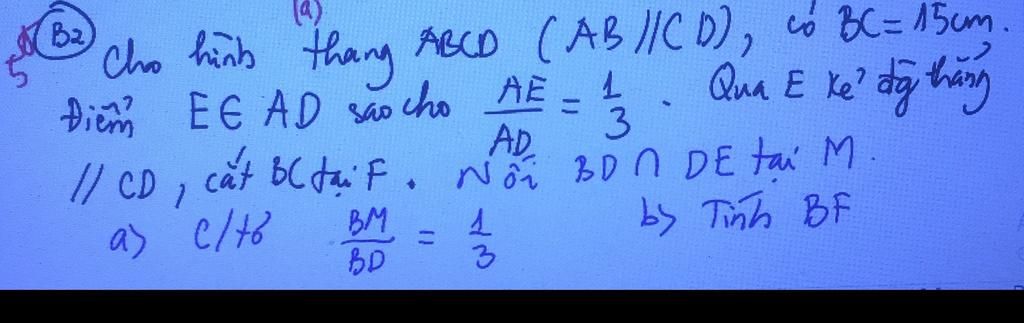 (a)
B2 Cho hình thang ABCD (AB//CD), có BC = 15cm.
Điểm E ∈ AD sao cho AE/AD = 1/3. Qua E kẻ đg thẳng
// CD, cắt BC tại F. Nối BD ∩ DE tại M.
a) C/tỏ BM/BD = 1/3 b) Tính BF